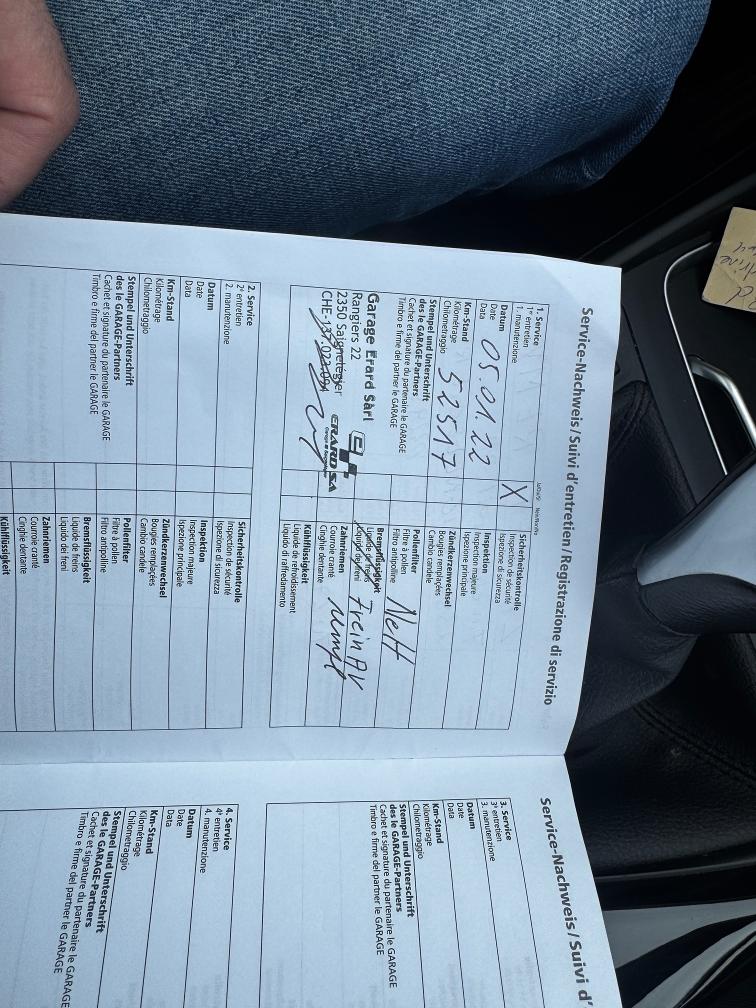 Service-Nachweis / Suivi d'entretien / Registrazione di servizio
1. Service
1er entretien
1. manutenzione
Datum
Date
Data
05.01.22
Km-Stand
Kilométrage
Chilometraggio
52517
Stempel und Unterschrift
des le GARAGE-Partners
Cachet et signature du partenaire le GARAGE
Timbro e firme del partner le GARAGE
Garage Erard Sàrl
Rangiers 22
2350 Saignelégier
CHE-137.023.094
ERARD SA
X
Sicherheitskontrolle
Inspection de sécurité
Ispezione di sicurezza
Inspektion
Inspection majeure
Ispezione principale
Zündkerzenwechsel
Bougies remplacées
Cambio candele
Pollenfilter
Filtre à pollen
Filtro antipolline
Nett
Bremsflüssigkeit
Liquide de freins
Liquido dei freni
Frein AV
Zahnriemen
Courroie cranté
Cinghie dentante
Kühlflüssigkeit
Liquide de refroidissement
Liquido di raffredamento
2. Service
2e entretien
2. manutenzione
Datum
Date
Data
Km-Stand
Kilométrage
Chilometraggio
Stempel und Unterschrift
des le GARAGE-Partners
Cachet et signature du partenaire le GARAGE
Timbro e firme del partner le GARAGE
Sicherheitskontrolle
Inspection de sécurité
Ispezione di sicurezza
Inspektion
Inspection majeure
Ispezione principale
Zündkerzenwechsel
Bougies remplacées
Cambio candele
Pollenfilter
Filtre à pollen
Filtro antipolline
Bremsflüssigkeit
Liquide de freins
Liquido dei freni
Zahnriemen
Courroie cranté
Cinghie dentante
Kühlflüssigkeit
Service-Nachweis / Suivi d'
3. Service
3e entretien
3. manutenzione
Datum
Date
Data
Km-Stand
Kilométrage
Chilometraggio
Stempel und Unterschrift
des le GARAGE-Partners
Cachet et signature du partenaire le GARAGE
Timbro e firme del partner le GARAGE
4. Service
4e entretien
4. manutenzione
Datum
Date
Data
Km-Stand
Kilométrage
Chilometraggio
Stempel und Unterschrift
des le GARAGE-Partners
Cachet et signature du partenaire le GARAGE
Timbro e firme del partner le GARAGE